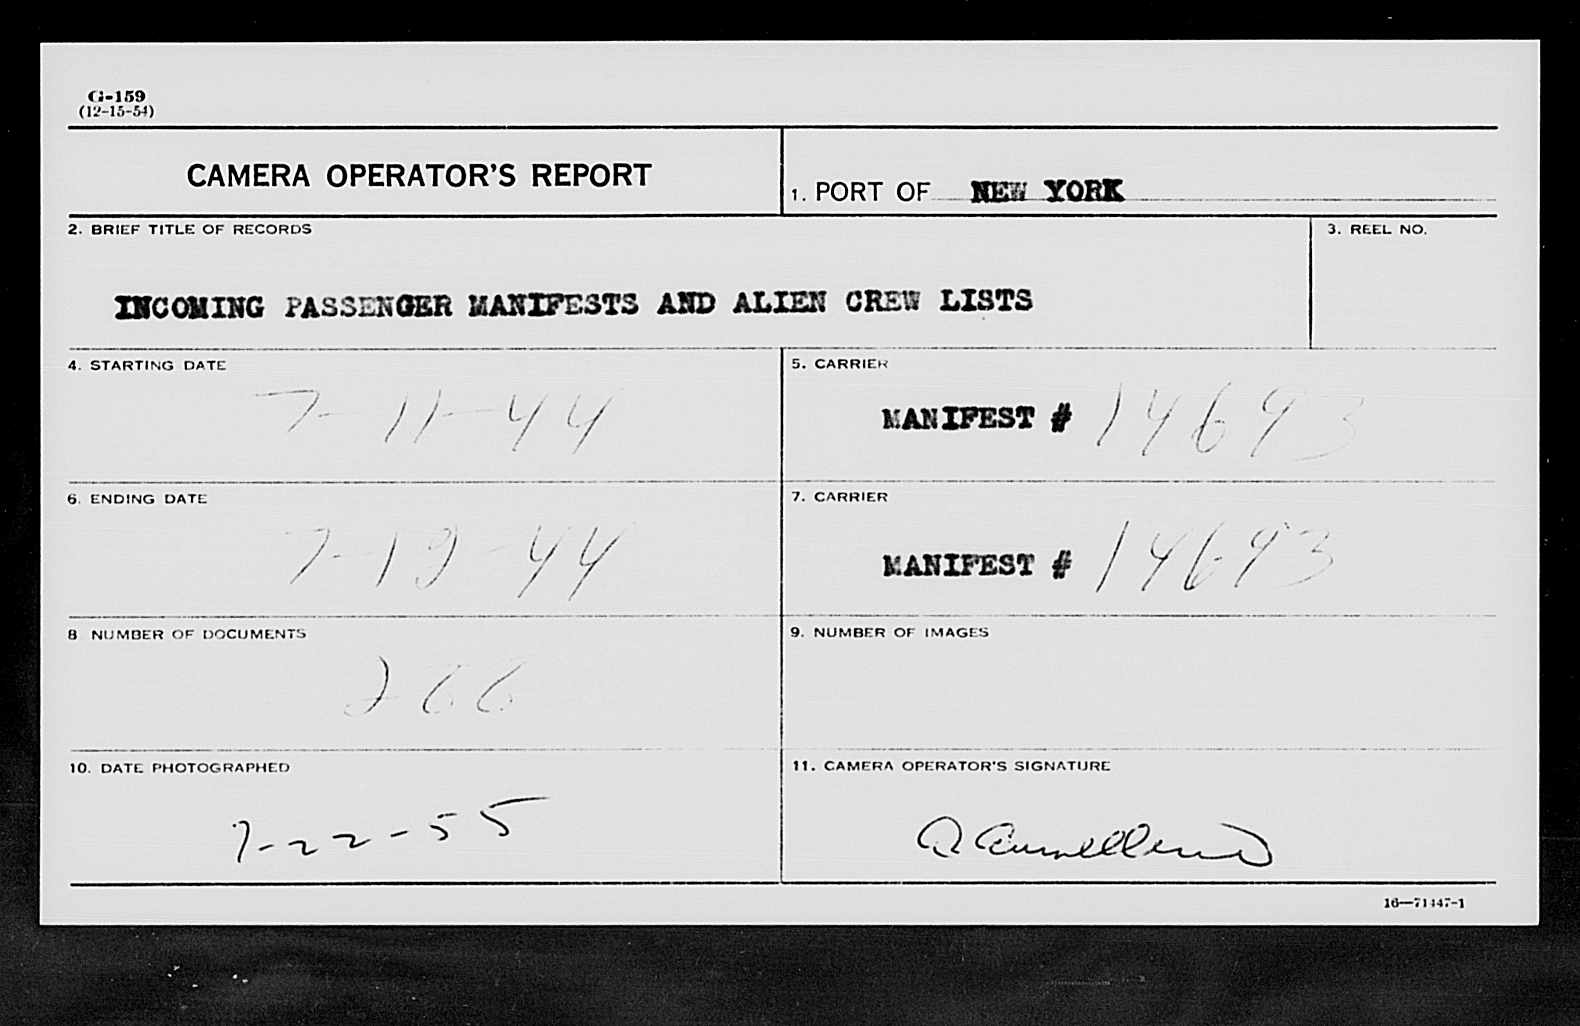 G-159
(12-15-54)
CAMERA OPERATOR'S REPORT
1. PORT OF NEW YORK
2. BRIEF TITLE OF RECORDS
3. REEL NO.
INCOMING PASSENGER MANIFESTS AND ALIEN CREW LISTS
4. STARTING DATE
7-11-44
5. CARRIER
MANIFEST # 14693
6. ENDING DATE
7-19-44
7. CARRIER
MANIFEST # 14693
8 NUMBER OF DOCUMENTS
266
9. NUMBER OF IMAGES
10. DATE PHOTOGRAPHED
7-22-55
11. CAMERA OPERATOR'S SIGNATURE
16—71447-1